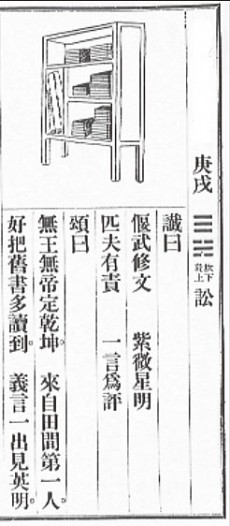 庚戌 ䷅ 坎下乾上 訟
讖曰
偃武修文 紫微星明
匹夫有責 一言爲評
頌曰
無王無帝定乾坤。來自田間第一人。
好把舊書多讀到。義言一出見英明。